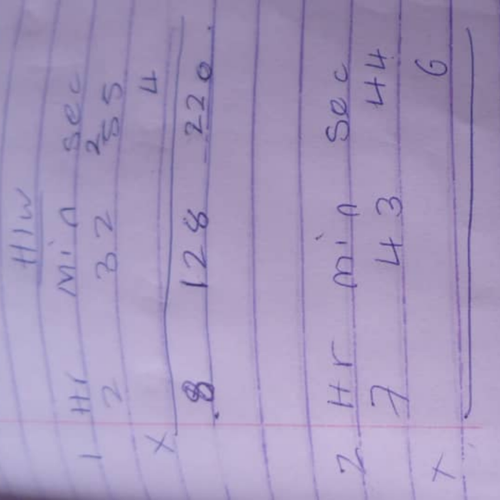 H/W
1 Hr min sec
2 32 55
2
x 4
8 128 220.
2 Hr min sec
7 43 44
x 6